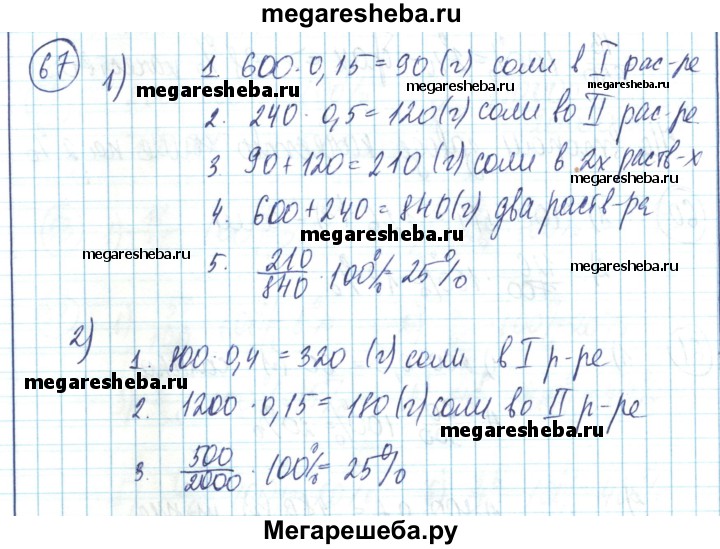 megaresheba.ru
67 1) 1. 600 · 0,15 = 90 (г) соли в I рас-ре
megaresheba.ru megaresheba.ru
2. 240 · 0,5 = 120 (г) соли во II рас-ре
3. 90 + 120 = 210 (г) соли в 2х раств-х
megaresheba.ru megaresheba.ru
4. 600 + 240 = 840 (г) два раств-ра
megaresheba.ru
megaresheba.ru megaresheba.ru
5. 210/840 · 100% = 25%
2) 1. 800 · 0,4 = 320 (г) соли в I р-ре
megaresheba.ru
2. 1200 · 0,15 = 180 (г) соли во II р-ре
megaresheba.ru
3. 500/2000 · 100% = 25%
Мегарешеба.ру